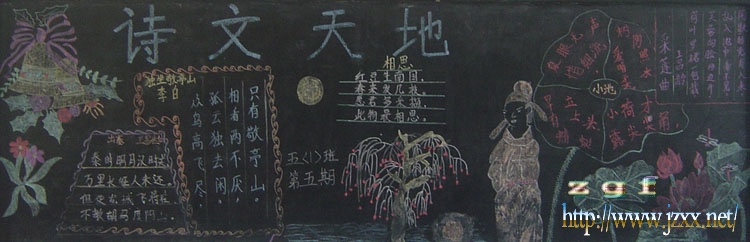 诗文天地
独坐敬亭山
李白
众鸟高飞尽，
孤云独去闲。
相看两不厌，
只有敬亭山。
出塞
秦时明月汉时关
万里长征人未还。
但使龙城飞将在
不教胡马度阴山。
相思
红豆生南国，
春来发几枝。
愿君多采撷，
此物最相思。
五〈1〉班
第五期
小池
泉眼无声
惜细流
小荷才
露尖尖角
立上头
采莲曲
zgf
http://www.jzxx.net/